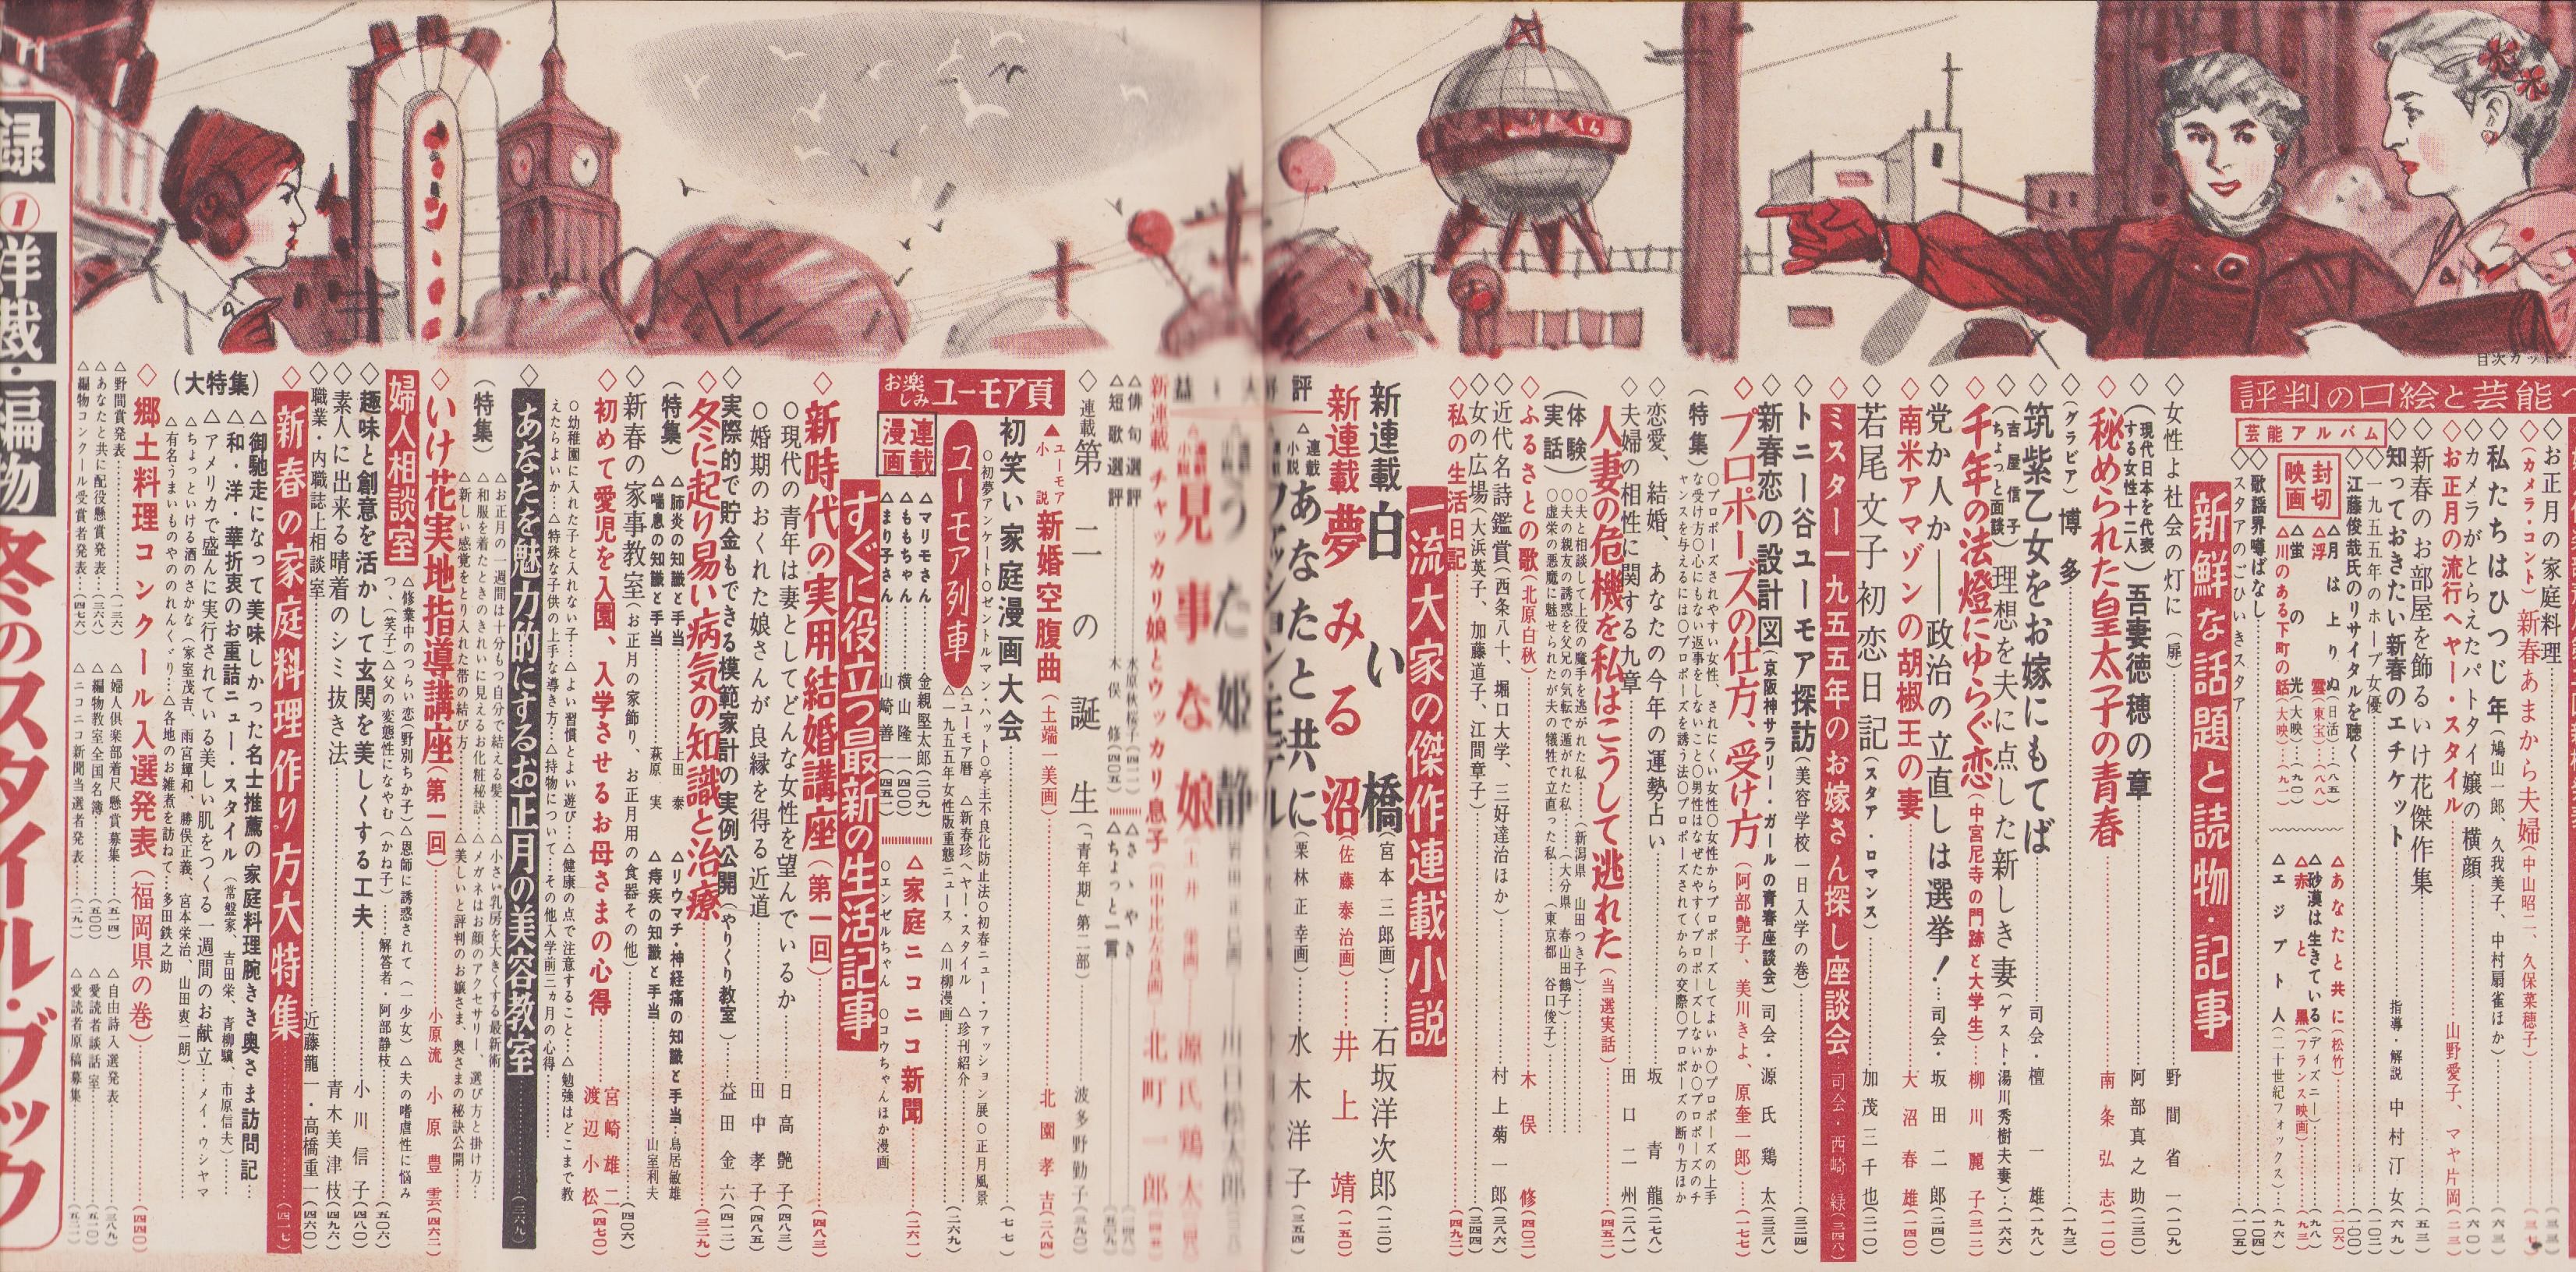 目次カット
評判の口絵と芸能
お正月の家庭料理
(カメラ・コント) 新春あまから夫婦(中山昭二、久保菜穂子)
私たちはひつじ年(鳩山一郎、久我美子、中村扇雀ほか)…(六三)
カメラがとらえたパトタイ嬢の横顔…(六〇)
お正月の流行ヘヤー・スタイル…山野愛子、マヤ片岡(二三)
新春のお部屋を飾るいけ花傑作集…(五三)
知っておきたい新春のエチケット…指導・解説 中村汀女(六九)
芸能アルバム
一九五五年のホープ女優…(一〇二)
江藤俊哉氏のリサイタルを聴く…(一〇〇)
封切映画
△月は上りぬ(日活)…(八五)
△浮雲(東宝)…(八八)
△螢の光(大映)…(九〇)
△川のある下町の話(大映)…(九一)
△あなたと共に(松竹)…(一〇六)
△砂漠は生きている(ディズニー)…(九八)
△赤と黒(フランス映画)…(九三)
△エジプト人(二十世紀フォックス)…(九六)
歌謡界噂ばなし…(一〇四)
スタアのごひいきスタア…(一〇五)
新鮮な話題と読物・記事
女性よ社会の灯に(扉)…野間省一(一〇九)
(現代日本を代表する女性十二人) 吾妻徳穂の章…阿部真之助(二三〇)
秘められた皇太子の青春…南条弘志(一一〇)
(グラビア) 博多…(一九三)
筑紫乙女をお嫁にもてば…司会・檀一雄(一九八)
(吉屋信子ちょっと面談) 理想を夫に点した新しき妻(ゲスト・湯川秀樹夫妻)…(一六六)
千年の法燈にゆらぐ恋(中宮尼寺の門跡と大学生)…柳川麗子(三一二)
党か人か――政治の立直しは選挙!…司会・坂田二郎(二四〇)
南米アマゾンの胡椒王の妻…大沼春雄(一四〇)
若尾文子初恋日記(スタア・ロマンス)…加茂三千也(二一〇)
ミスター一九五五年のお嫁さん探し座談会…司会・西崎緑(三四八)
トニー谷ユーモア探訪(美容学校一日入学の巻)…(三二四)
新春恋の設計図(京阪神サラリー・ガールの青春座談会) 司会・源氏鶏太(三三八)
プロポーズの仕方、受け方(阿部艶子、美川きよ、原奎一郎)…(一七七)
(特集)
〇プロポーズされやすい女性、されにくい女性〇女性からプロポーズしてよいか〇プロポーズの上手な受け方〇心にもない返事をしないこと〇男性はなぜたやすくプロポーズしないか〇プロポーズのチャンスを与えるには〇プロポーズを誘う法〇プロポーズされてからの交際〇プロポーズの断り方ほか
恋愛、結婚、あなたの今年の運勢占い…坂青龍(二七八)
夫婦の相性に関する九章…田口二州(二八一)
人妻の危機を私はこうして逃れた(当選実話)…(四五二)
(体験実話)
〇夫と相談して上役の魔手を逃がれた私…(新潟県 山田つき子)
〇夫の親友の誘惑を父兄の気転で遁がれた私…(大分県 春山田鶴子)
〇虚栄の悪魔に魅せられたが夫の犠牲で立直った私…(東京都 谷口俊子)
ふるさとの歌(北原白秋)…木俣修(四〇二)
近代名詩鑑賞(西条八十、堀口大学、三好達治ほか)…村上菊一郎(三八六)
女の広場(大浜英子、加藤道子、江間章子)…(三四四)
私の生活日記…(四九二)
一流大家の傑作連載小説
新連載 白い橋(宮本三郎画)…石坂洋次郎(一二〇)
新連載 夢みる沼(佐藤泰治画)…井上靖(一五〇)
連載小説 あなたと共に(栗林正幸画)…水木洋子(三五四)
うた姫静 川口松太郎
見事な娘 源氏鶏太
新連載 チャッカリ娘とウッカリ息子 北町一郎
△俳句選評…水原秋桜子(四一二)
△短歌選評…木俣修(四〇五)
△さゝやき
△ちょっと一言
連載 第二の誕生(「青年期」第二部)…波多野勤子(三九〇)
ユーモア小説 新婚空腹曲(土端一美画)…北園孝吉(二八四)
お楽しみ ユーモア頁
初笑い家庭漫画大会…(一七七)
〇初夢アンケート〇ゼントルマン・ハット〇亭主不良化防止法〇初春ニュー・ファッション展〇正月風景
ユーモア列車
△ユーモア暦 △新春珍ヘヤー・スタイル △珍刊紹介
△一九五五年女性版重態ニュース △川柳漫画…(二六九)
連載漫画
△マリモさん…金親堅太郎(三〇九)
△ももちゃん…横山隆一(四〇〇)
△まり子さん…山崎善一(四五一)
△家庭ニコニコ新聞…(二六一)
〇エンゼルちゃん 〇コウちゃんほか漫画
すぐに役立つ最新の生活記事
新時代の実用結婚講座(第一回)…(四八三)
〇現代の青年は妻としてどんな女性を望んでいるか…日高艶子(四八三)
〇婚期のおくれた娘さんが良縁を得る近道…田中孝子(四八五)
実際的で貯金もできる模範家計の実例公開(やりくり教室)…益田金六(四一二)
冬に起り易い病気の知識と治療…(三二九)
(特集)
△肺炎の知識と手当…上田泰
△喘息の知識と手当…萩原実
△リウマチ・神経痛の知識と手当…島居敏雄
△痔疾の知識と手当…山室利夫
新春の家事教室(お正月の家飾り、お正月用の食器その他)…(四〇六)
初めて愛児を入園、入学させるお母さまの心得…宮崎雄二 渡辺小松(四七〇)
〇幼稚園に入れた子と入れない子…△よい習慣とよい遊び…△健康の点で注意すること…△勉強はどこまで教えたらよいか…△特殊な子供の上手な導き方…△持物について…その他入学前三ヵ月の心得
あなたを魅力的にするお正月の美容教室…(三六九)
(特集)
△お正月の一週間は十分もつ自分で結える髪…△小さい乳房を大きくする最新術
△和服を着たときのきれいに見えるお化粧秘訣…△メガネはお顔のアクセサリー、選び方と掛け方…
△新しい感覚をとり入れた帯の結び方…△美しいと評判のお嬢さま、奥さまの秘訣公開…
いけ花実地指導講座(第一回)…小原流 小原豊雲(四六二)
婦人相談室
△修業中のつらい恋(野別ちか子)△恩師に誘惑されて(一少女) △夫の嗜虐性に悩みつゝ(笑子)△父の変態性になやむ(かね子)…解答者・阿部静枝(五〇六)
趣味と創意を活かして玄関を美しくする工夫…小川信子(四八〇)
素人に出来る晴着のシミ抜き法…青木美津枝(四九六)
職業・内職誌上相談室…近藤龍一・高橋重一(四六〇)
新春の家庭料理作り方大特集…(四一七)
(大特集)
△御馳走になって美味しかった名士推薦の家庭料理腕きき奥さま訪問記…
△和・洋・華折衷のお重詰ニュー・スタイル(常盤家、吉田栄、青柳驥、市原信夫)…
△アメリカで盛んに実行されている美しい肌をつくる一週間のお献立…メイ・ウシヤマ
△ちょっといける酒のさかな(家室茂吉、雨宮輝和、勝俣正義、宮本栄治、山田東二朗)
△有名うまいものやののれんくゞり…△各地のお雑煮を訪ねて…多田鉄之助
郷土料理コンクール入選発表(福岡県の巻)…(四四〇)
△野間賞発表…(一三六)
△あなたと共に配役懸賞発表…(三六八)
△編物コンクール受賞者発表…(四七六)
△婦人倶楽部着尺懸賞募集…(五一四)
△編物教室全国名簿…(五〇〇)
△ニコニコ新聞当選者発表…(二九一)
△自由詩入選発表…(三八九)
△愛読者談話室…(五一〇)
△愛読者原稿募集…(五一一)
録
① 洋裁・編物
冬のスタイル・ブック